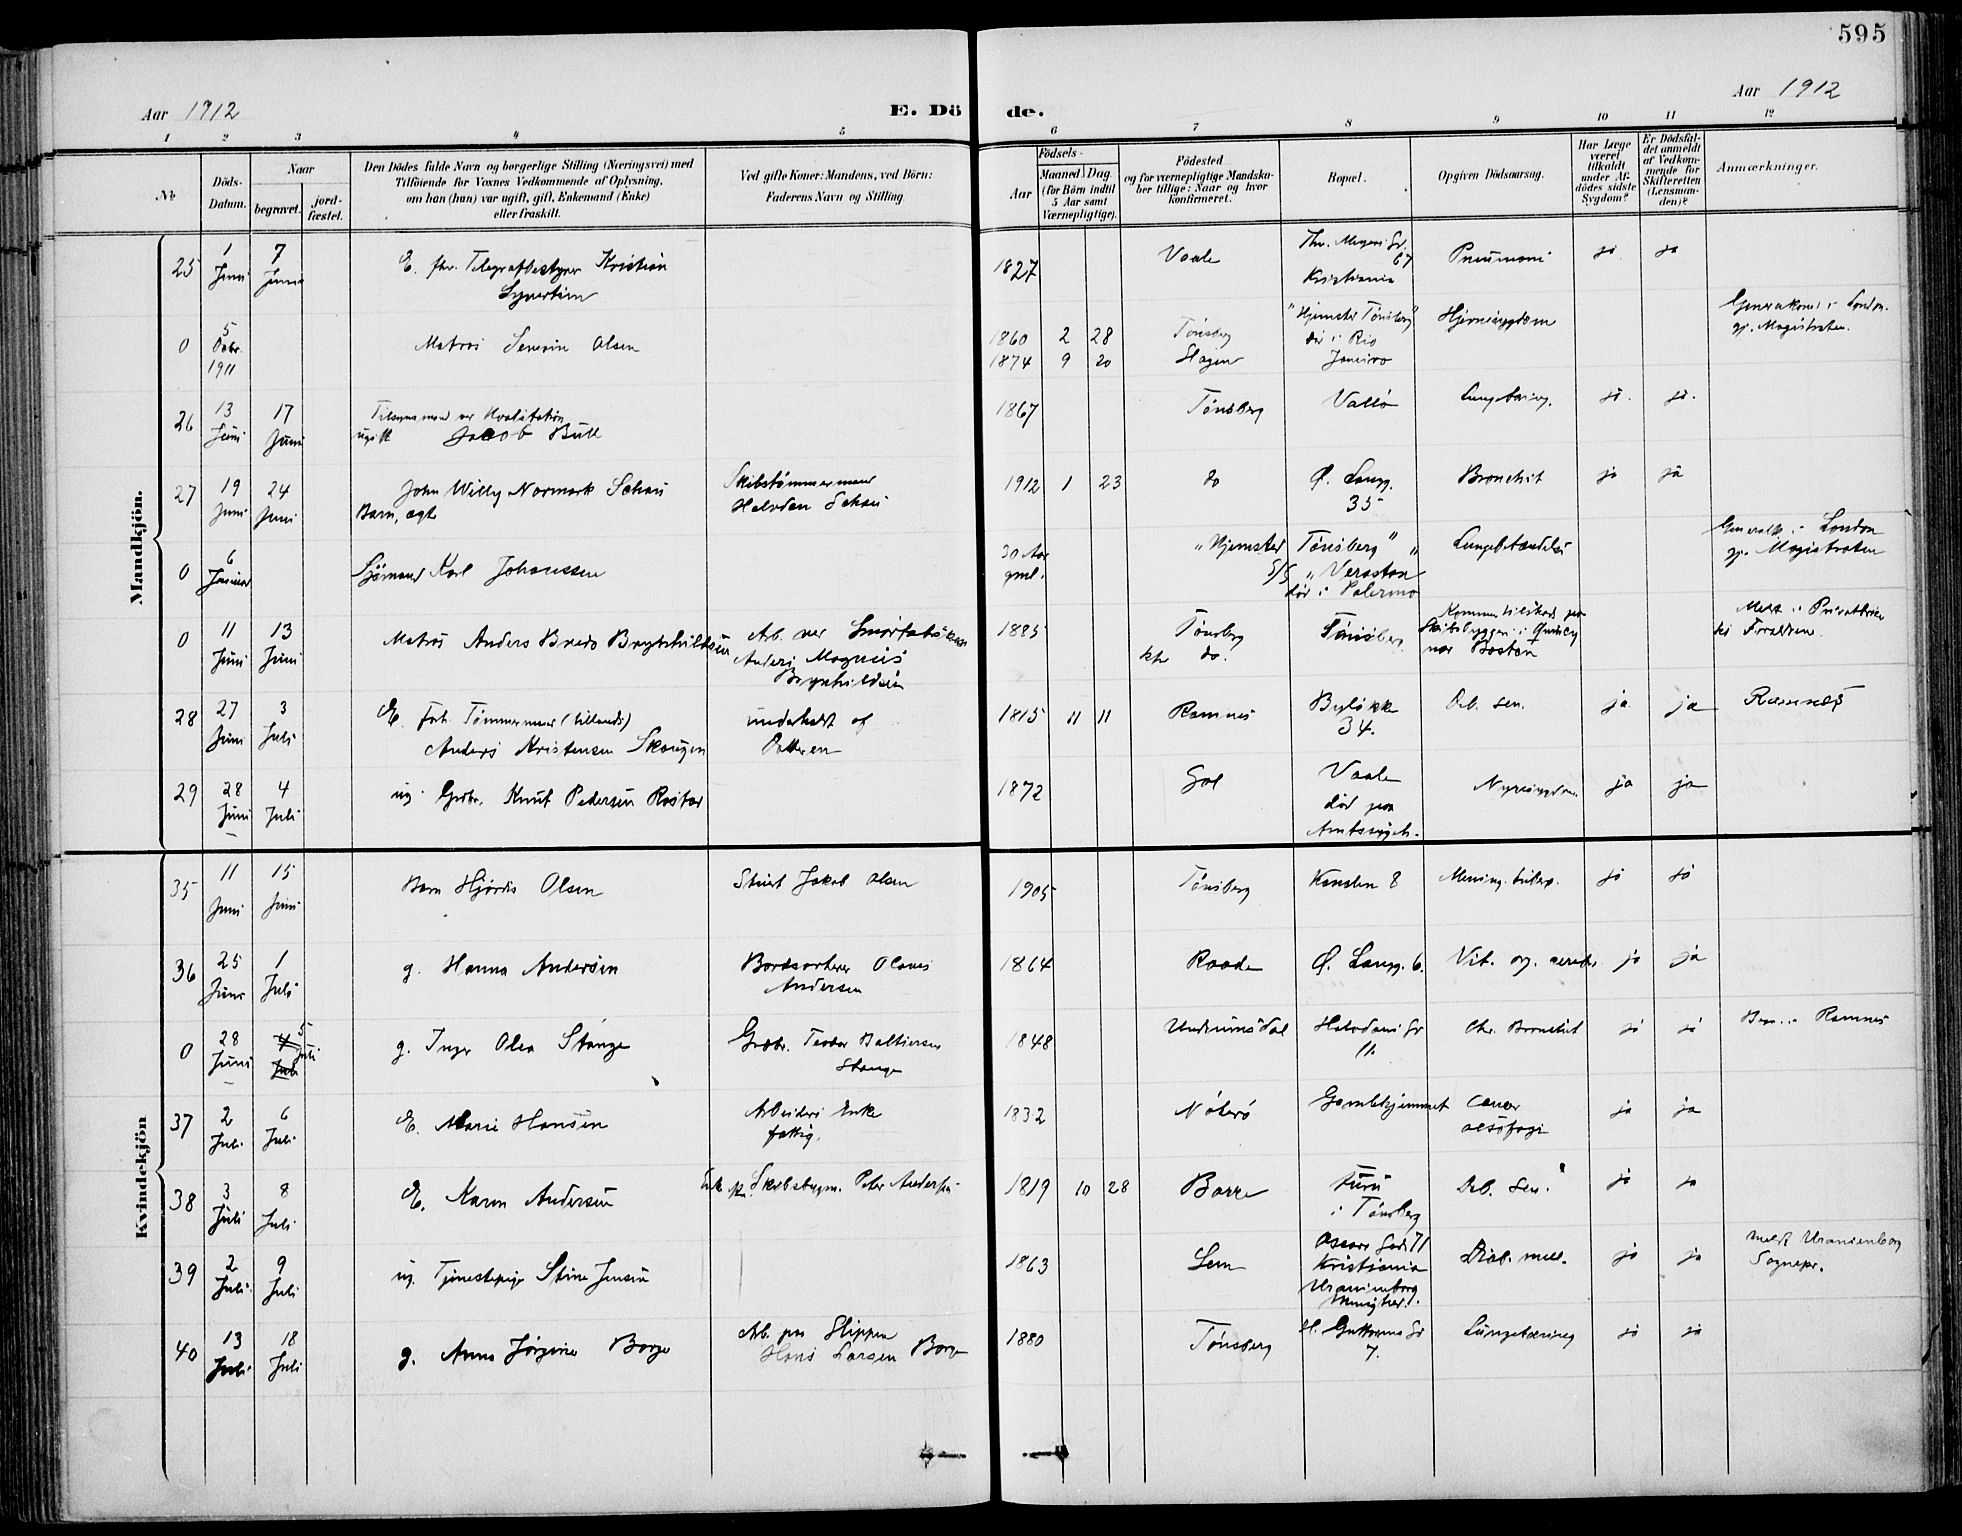 595
Aar 1912
E. Dö
de.
Aar 1912
1 2 3 4 5 6 7 8 9 10 11 12
No
Döds-
Datum.
Naar
begravet.
jord-
fæstet.
Den Dödes fulde Navn og borgerlige Stilling (Næringsvei) med
Tilföiende for Voxnes Vedkommende af Oplysning,
om han (hun) var ugift, gift, Enkemand (Enke)
eller fraskilt.
Ved gifte Koner: Mandens, ved Börn:
Faderens Navn og Stilling.
Födsels-
Aar
Maaned Dag
(for Börn indtil
5 Aar samt
Værnepligtige).
Födested
og for værnepligtige Mandska-
ber tillige: Naar og hvor
konfirmeret.
Bopæl.
Opgiven Dödsaarsag.
Har Læge
været
tilkaldt
under Af-
dödes sidste
Sygdom?
Er Dödsfal-
det anmeldt
af Vedkom-
mende for
Skifteretten
(Lensman-
den)?
Anmærkninger.
Mandkjön.
25 1 Juni 7 Juni E. fhv. Telegrafbestyrer Kristian
Syvertsen
1827 Vaale Thv. Meyers Gt. 67
Kristiania Pneumoni ja ja
0 5 Dcbr. 1911 Matros Severin Olsen
1860 2 28 Tönsberg
1874 9 20 Slagen
"Hjemster Tönsberg"
död i Rio
Janeiro
Hjernesygdom
Generalkons i London
gj. Magistraten.
26 13 Juni 17 Juni
ugift Jacob Bull
1867 Tönsberg Vallö Lungetæring. ja. ja.
27 19 Juni 24 Juni John Willy Normark Schau
Barn, ægte
Skibstömmermand
Halvdan Schau
1912 1 23 do Ø. Langg.
35 Bronchit ja ja
0 6 Januar Sjömand Karl Johanssen
30 Aar
gml.
"Hjemster Tönsberg"
S/S "Veraston"
död i Palermo
Lungebetændelse
Generalk. i London
gj. Magistraten
0 11 Juni 13 Juni Matros Anders Bredo Brynhildsen
Arb. ver Smörfabriken
Anders Magnus
Brynhildsen
1885 Tönsberg
kfr do.
Tönsberg
Kommen tilskade paa
Skibsbyggeri i Quincy
nær Boston
Meldt i
28 27 Juni 3 Juli E. Forh. Tömmermand (tillands)
Anders Kristensen Skaugen
underholdt af
Datteren
1815 11 11 Ramnes Bylökke
34. Deb. sen. ja ja Ramnes
29 28 Juni 4 Juli ug. Grdbr. Knut Pedersen Rostad
1872 Gol Vaale
död paa
Amtssygeh.
Nyresygdom. ja ja
Kvindekjön
35 11 Juni 15 Juni Barn Hjördis Olsen Stuert Jakob Olsen
1905 Tönsberg Kanalen 8 Mening. tuberc. ja ja
36 25 Juni 1 Juli g. Hanna Andersen Bordsorterer Olaves
Andersen
1864 Raade Ø. Langg. 6. Vit. og. cordis ja ja
0 28 Juni 5 Juli g. Inger Olea Stange Grdbr. Teodor Baltzersen
Stange
1848 Undrumsdal Halvdans Gt
11. Chr. Bronchit ja ja Begr. i Ramnes
37 2 Juli 6 Juli E. Marie Hansen Arbeiders Enke
fattig.
1832 Nöterö Gamlehjemmet Cancer
oesofagi ja ja
38 3 Juli 8 Juli E. Karen Andersen Enke Skibsbygm. Peter Andersen
1819 10 28 Borre Furu
i Tönsberg Deb. sen. ja ja
39 2 Juli 9 Juli ug. Tjenestepige Stine Jensen
1863 Sem Oscars Gade 71
Kristiania
Uranienborg
Menighed. Diab. mell. ja ja
meldt Uranienborg
Sognepr.
40 13 Juli 18 Juli g. Anna Jörgine Borge Arb. paa Slippen
Hans Larsen Borge
1880 Tönsberg H. Guttorms Gt
7. Lungetæring ja ja